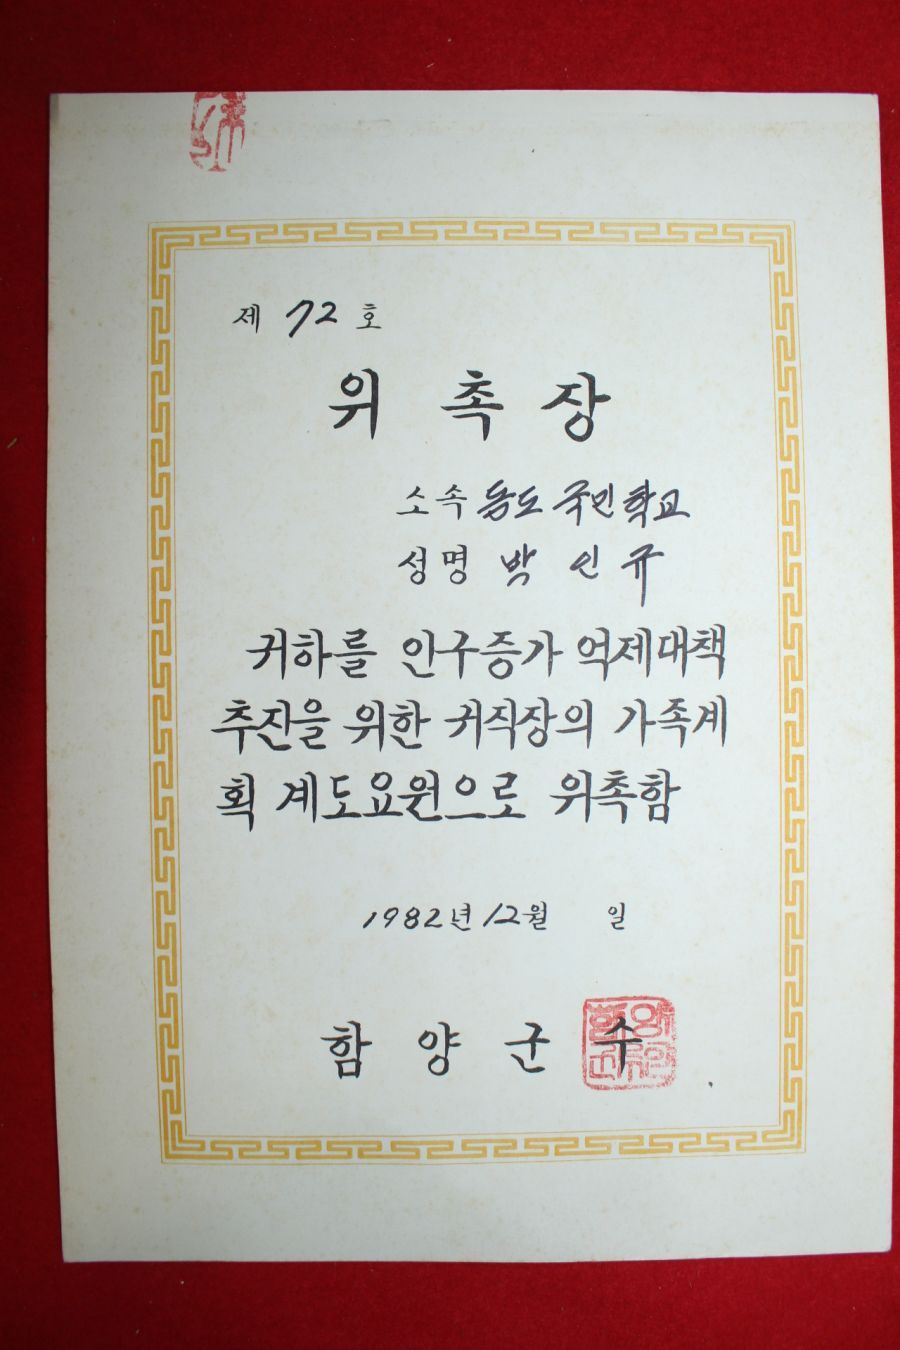 제 72 호
위 촉 장
소속 동도 국민학교
성명 박 인 규
귀하를 인구증가 억제대책
추진을 위한 귀직장의 가족계
획 계도요원으로 위촉함
1982년 12월 일
함 양 군 수